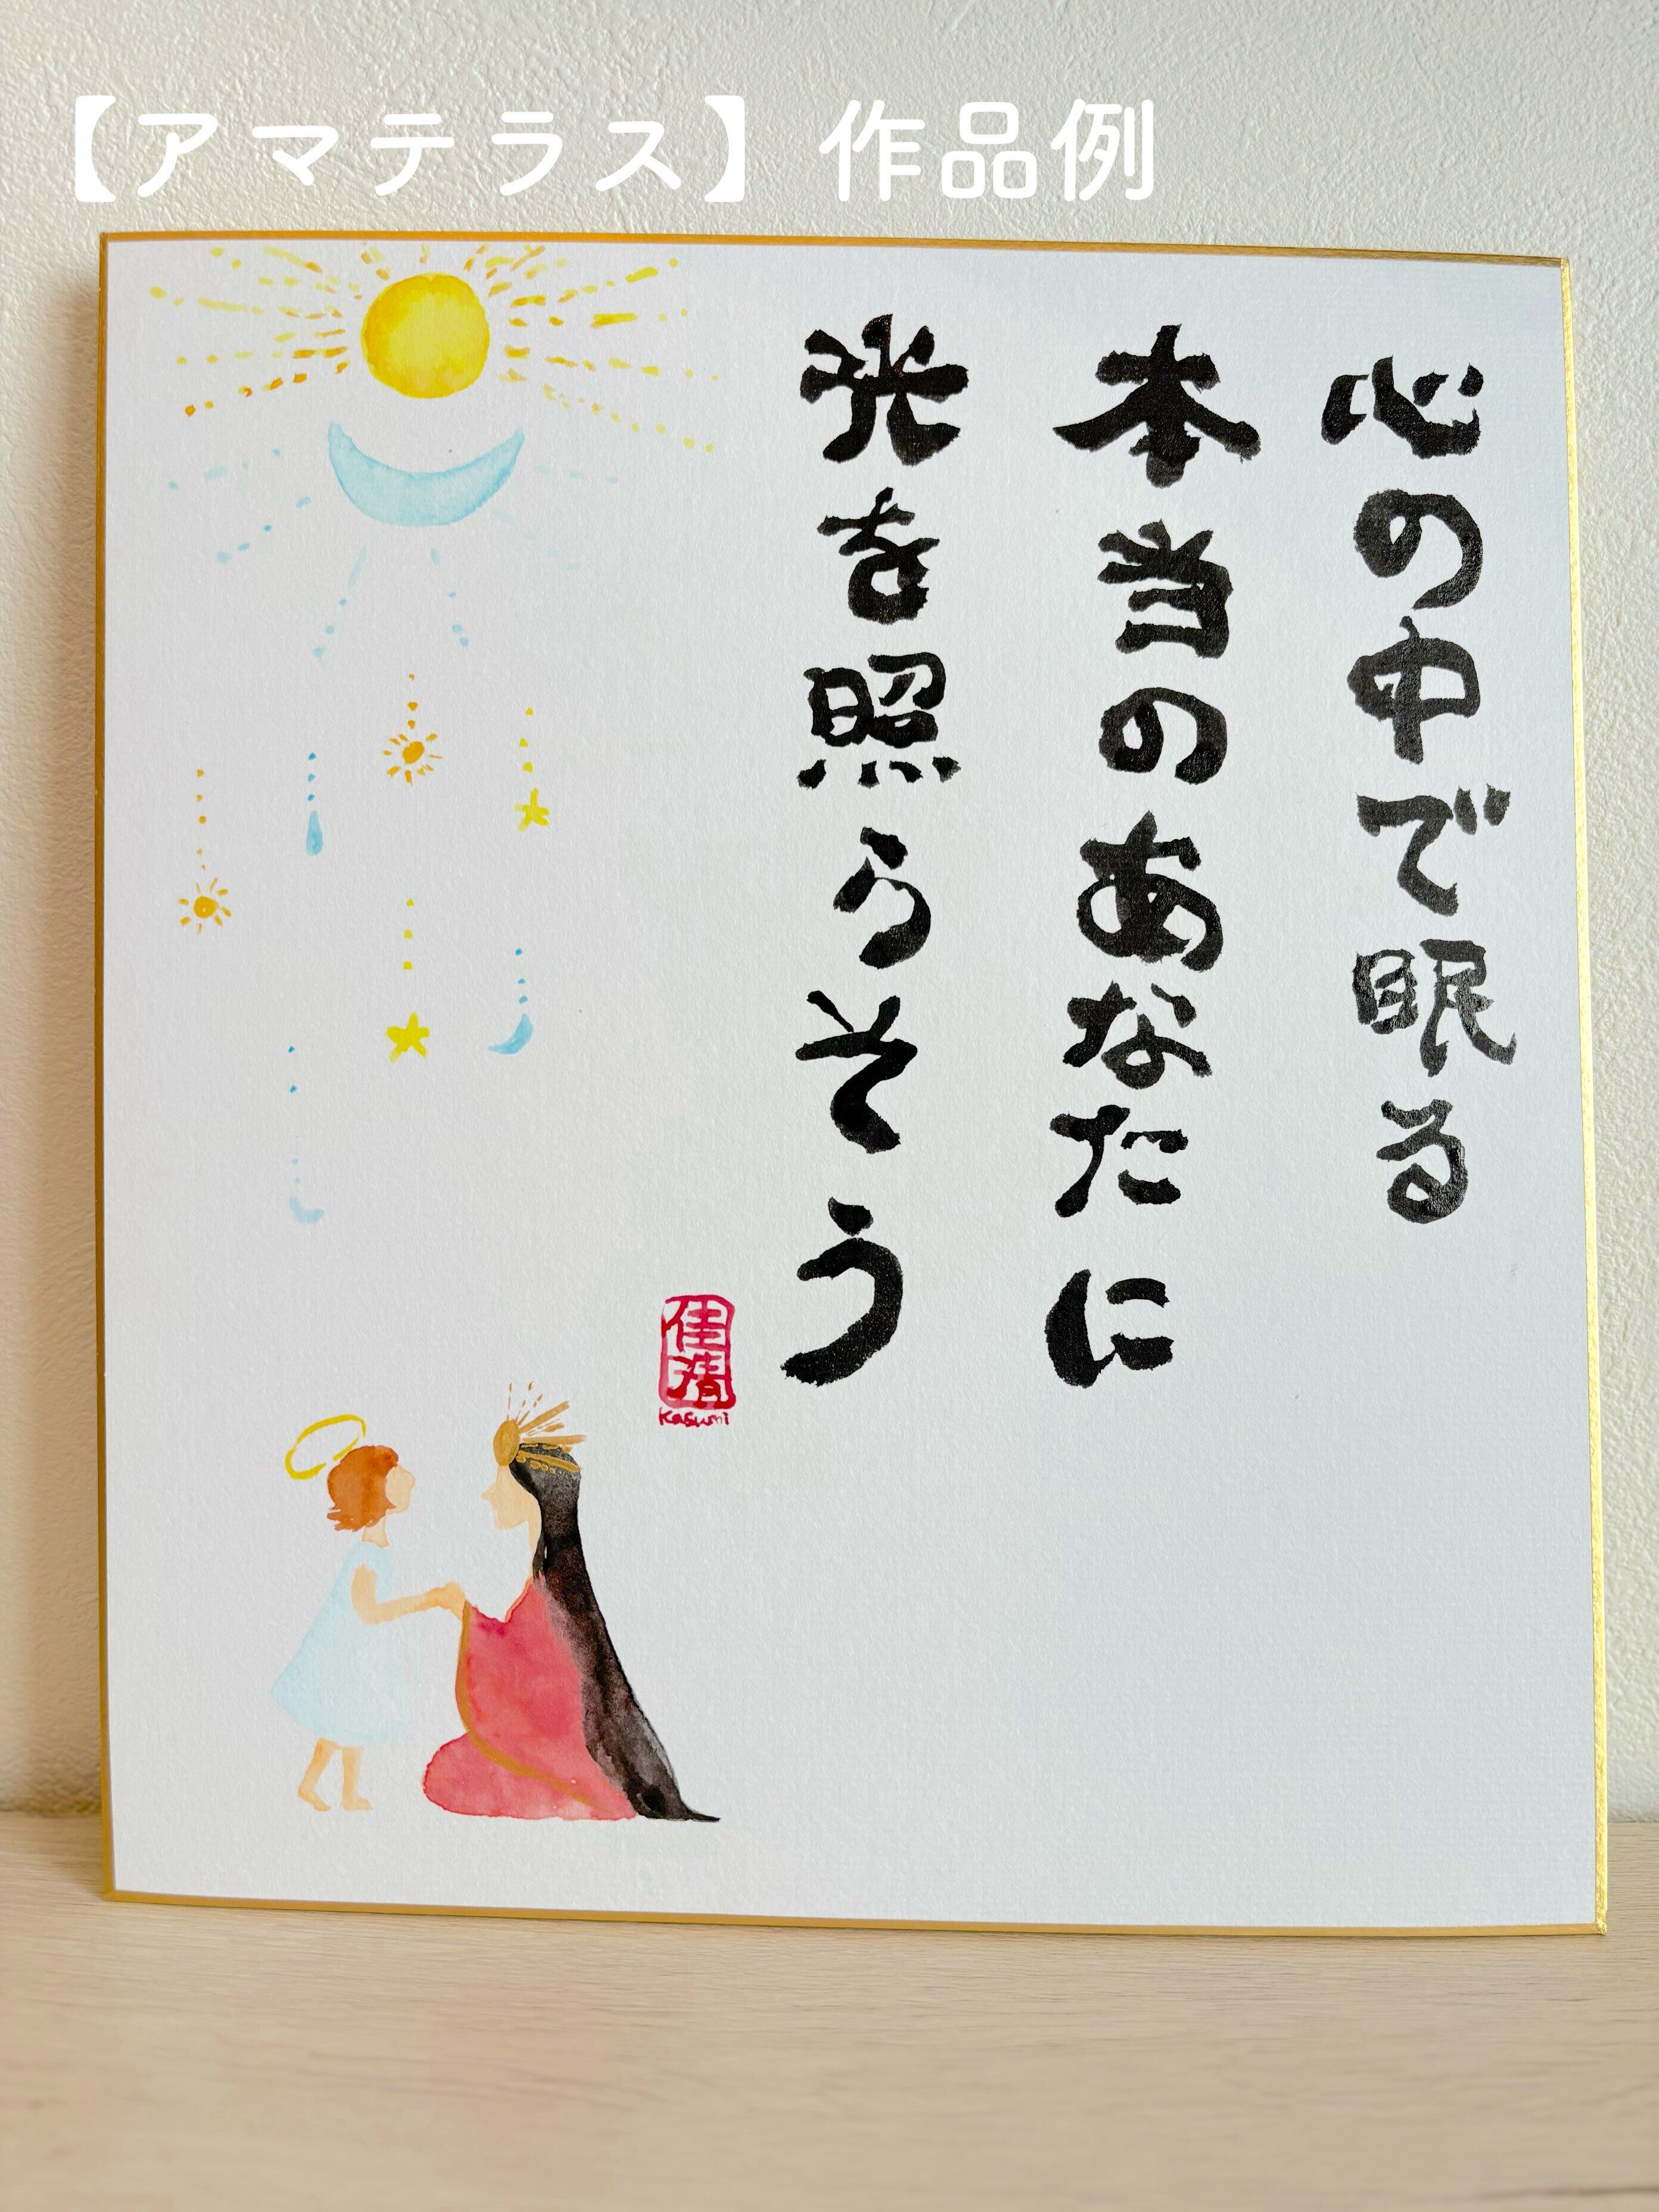 【アマテラス】作品例
心の中で眠る
本当のあなたに
光を照らそう
佳清
Kasumi